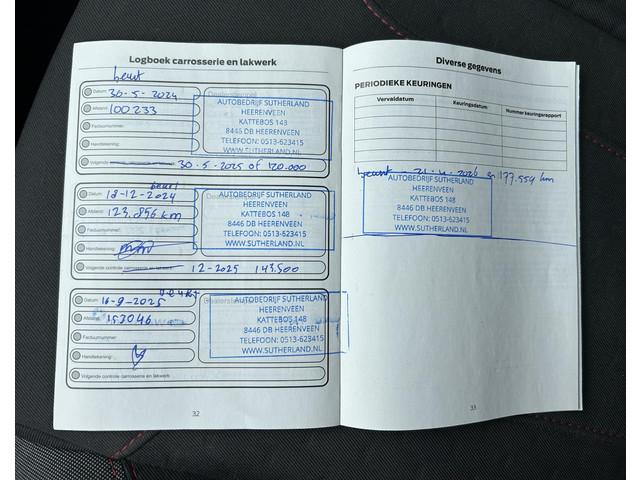 Logboek carrosserie en lakwerk
beurt
Datum: 30-5-2024
Afstand: 100233
Factuurnummer:
Handtekening:
AUTOBEDRIJF SUTHERLAND
HEERENVEEN
KATTEBOS 148
8446 DB HEERENVEEN
TELEFOON: 0513-623415
WWW.SUTHERLAND.NL
Volgende 30-5-2025 of 120.000
beurt
Datum: 18-12-2024
Afstand: 123.856 km
Factuurnummer:
Handtekening:
AUTOBEDRIJF SUTHERLAND
HEERENVEEN
KATTEBOS 148
8446 DB HEERENVEEN
TELEFOON: 0513-623415
WWW.SUTHERLAND.NL
Volgende controle carrosserie en lakwerk 12-2025 143.500
Datum: 16-9-2025
Afstand: 153046
Factuurnummer:
Handtekening:
AUTOBEDRIJF SUTHERLAND
HEERENVEEN
KATTEBOS 148
8446 DB HEERENVEEN
TELEFOON: 0513-623415
WWW.SUTHERLAND.NL
Volgende controle carrosserie en lakwerk
32
Diverse gegevens
PERIODIEKE KEURINGEN
Vervaldatum Keuringsdatum Nummer keuringsrapport
beurt 2026 177.554 km
AUTOBEDRIJF SUTHERLAND
HEERENVEEN
KATTEBOS 148
8446 DB HEERENVEEN
TELEFOON: 0513-623415
WWW.SUTHERLAND.NL
33